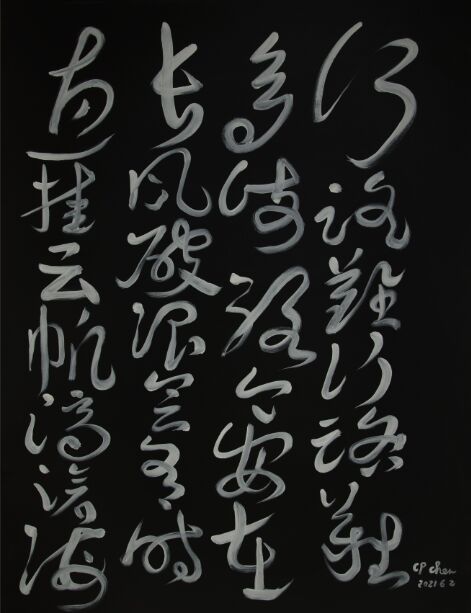 行路难行路难
多歧路今安在
长风破浪会有时
直挂云帆济沧海
CP Chen
2021 6 2